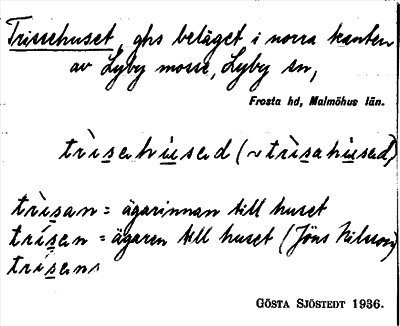 Trissehuset, ghs beläget i norra kanten
av Lyby mosse, Lyby sn,
Frosta hd, Malmöhus län.
trìsehu̲sed (~ trìsahu̲sed)
trìsan = ägarinnan till huset
trísen = ägaren till huset (Jöns Nilsson)
trísens
GÖSTA SJÖSTEDT 1936.